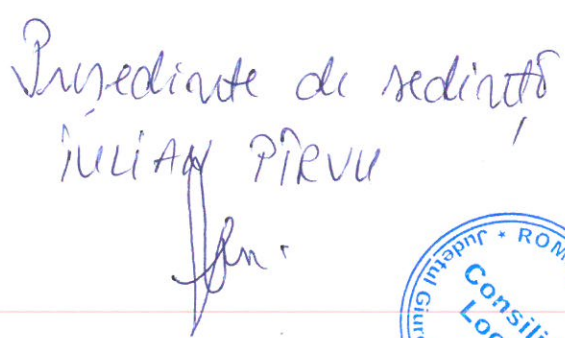 Președinte de ședință
IULIAN PÎRVU
Județul Giur
* ROM
Consili
Loc